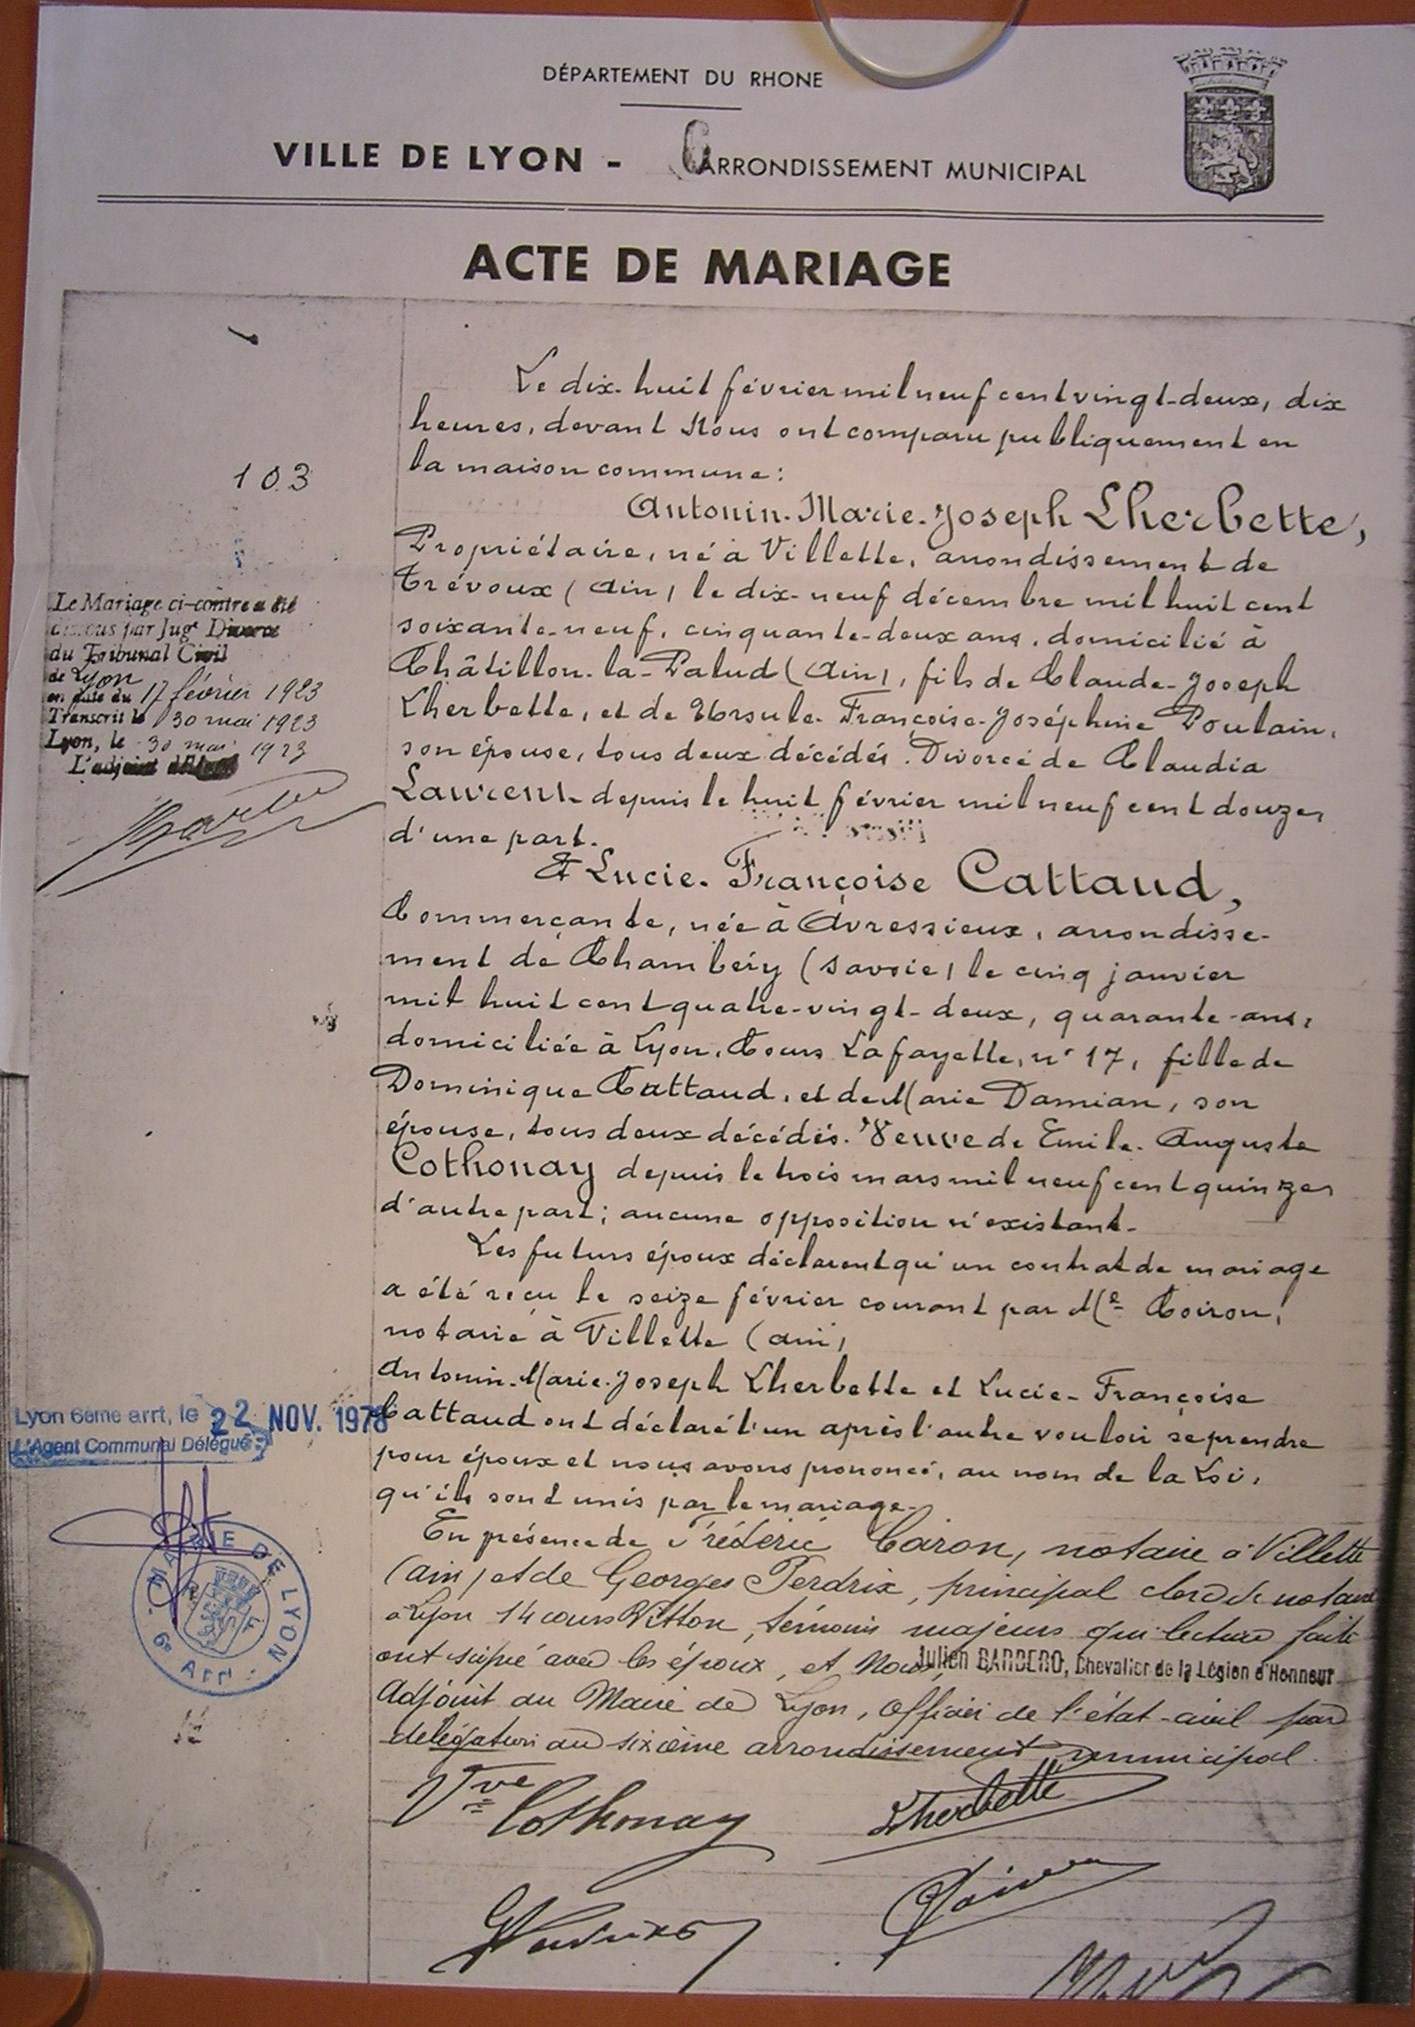 DÉPARTEMENT DU RHONE
VILLE DE LYON - 6 ARRONDISSEMENT MUNICIPAL
ACTE DE MARIAGE
103
Le Mariage ci-contre a été
dissous par Jugt Divorce
du Tribunal Civil
de Lyon
en date du 17 février 1923
Transcrit le 30 mai 1923
Lyon, le 30 mai 1923
L'adjoint
Le dix-huit février mil neuf cent vingt-deux, dix
heures, devant Nous ont comparu publiquement en
la maison commune :
Antonin-Marie-Joseph Lherbette,
Propriétaire, né à Villette, arrondissement de
Trévoux (Ain) le dix-neuf décembre mil huit cent
soixante-neuf, cinquante-deux ans, domicilié à
Châtillon-la-Palud (Ain), fils de Claude-Joseph
Lherbette, et de Ursule-Françoise-Joséphine Poulain,
son épouse, tous deux décédés. Divorcé de Claudia
Laurent depuis le huit février mil neuf cent douze,
d'une part.
Et Lucie-Françoise Cattaud,
Commerçante, née à Avressieux, arrondisse-
ment de Chambéry (Savoie) le cinq janvier
mil huit cent quatre-vingt-deux, quarante ans,
domiciliée à Lyon, Cours Lafayette, n° 17, fille de
Dominique Cattaud, et de Marie Damian, son
épouse, tous deux décédés. Veuve de Emile-Auguste
Cothonay depuis le trois mars mil neuf cent quinze,
d'autre part ; aucune opposition n'existant.
Les futurs époux déclarent qu'un contrat de mariage
a été reçu le seize février courant par Me Coiron,
notaire à Villette (Ain)
Antonin-Marie-Joseph Lherbette et Lucie-Françoise
Cattaud ont déclaré l'un après l'autre vouloir se prendre
pour époux et nous avons prononcé, au nom de la Loi,
qu'ils sont unis par le mariage.
En présence de Fréderic Coiron, notaire à Villette
(Ain) et de Georges Perdrix, principal clerc de notaire
à Lyon 14 cours Vitton, témoins majeurs qui lecture faite
ont signé avec les époux, et Nous Julien BARBERO, Chevalier de la Légion d'Honneur
Adjoint au Maire de Lyon, Officier de l'état-civil par
délégation au sixième arrondissement municipal.
Vve Cothonay
Lherbette
Lyon 6ème arrt, le 22 NOV. 1978
L'Agent Communal Délégué :
MAIRIE DE LYON
R F
6e Arrt